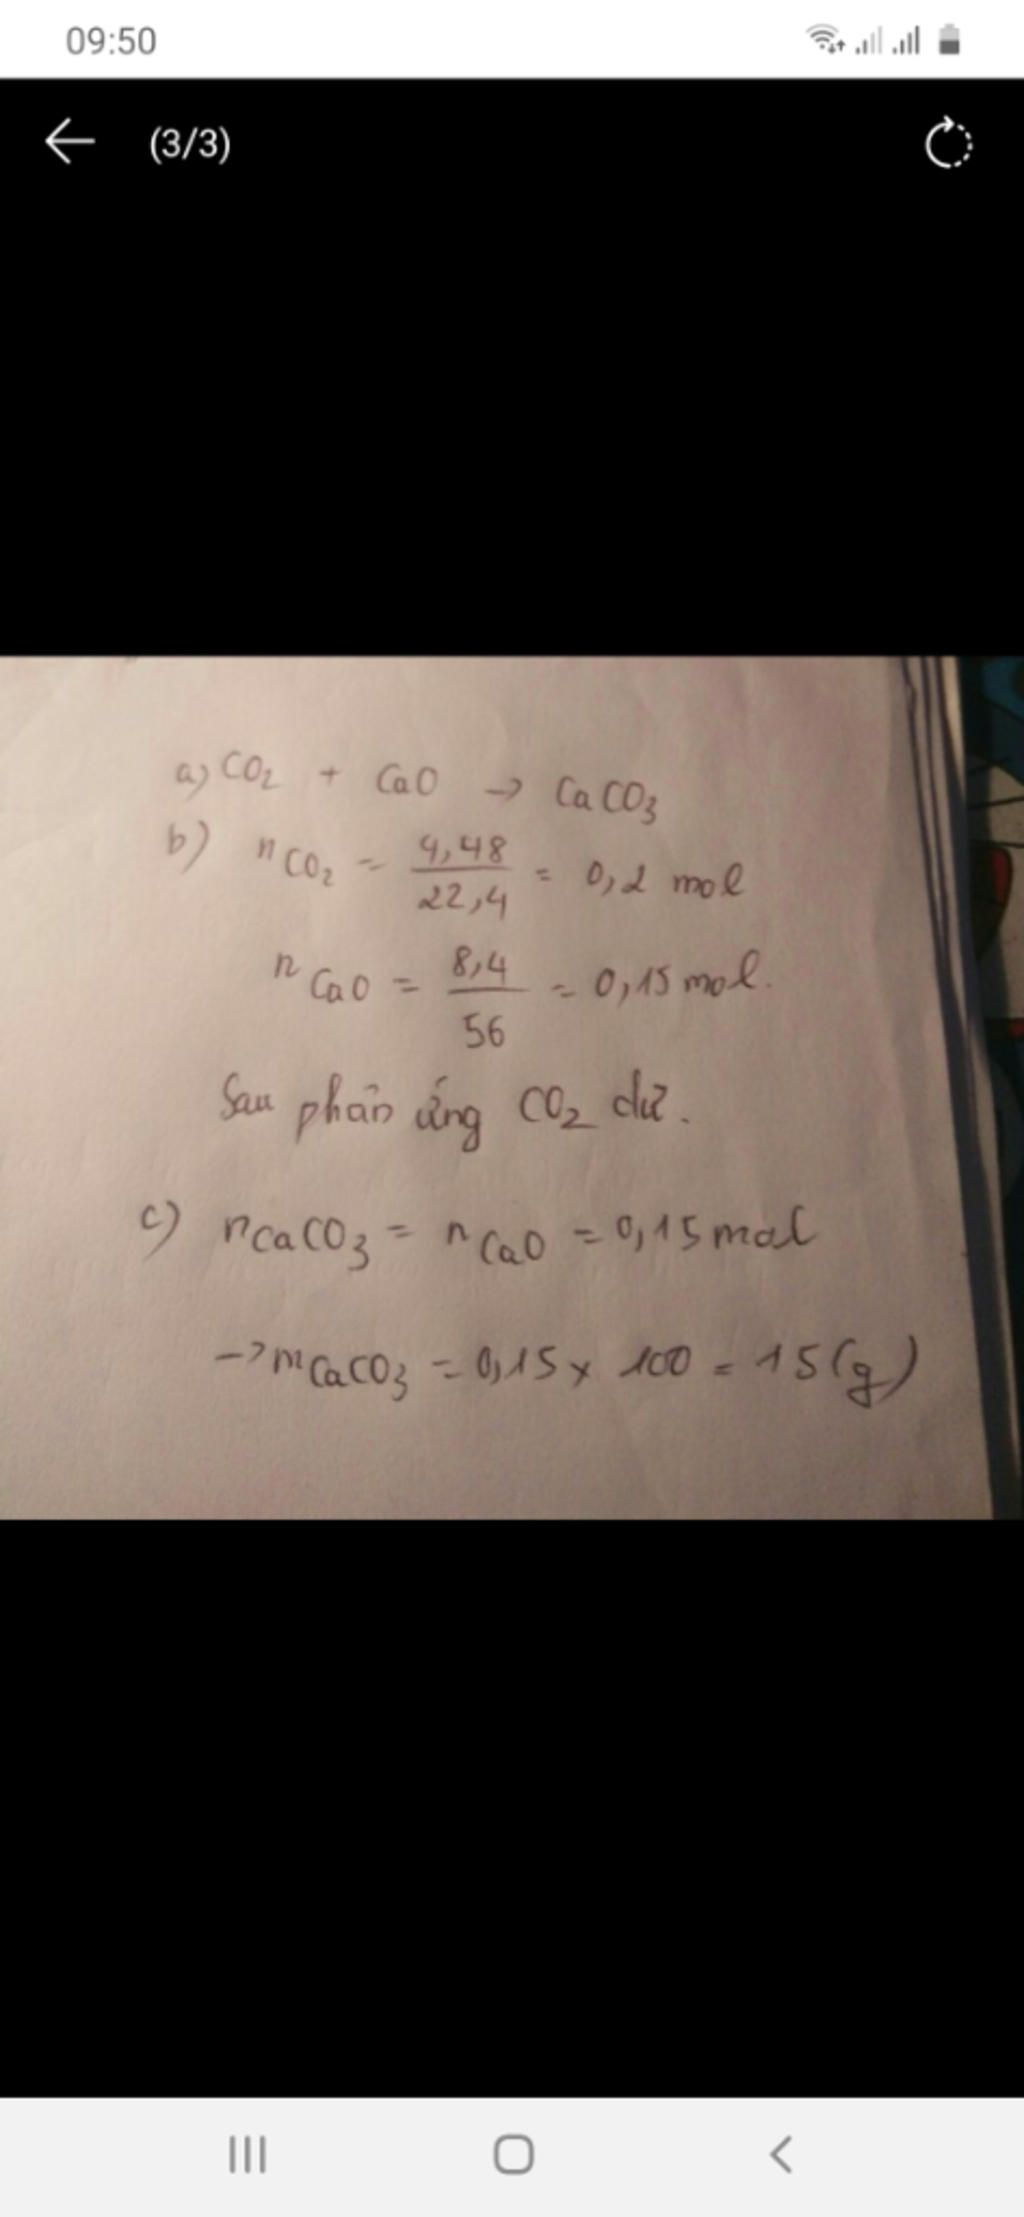 09:50
(3/3)
a) CO₂ + CaO → CaCO₃
b) nCO₂ = 4,48/22,4 = 0,2 mol
nCaO = 8,4/56 = 0,15 mol.
Sau phản ứng CO₂ dư.
c) nCaCO₃ = nCaO = 0,15 mol
→ mCaCO₃ = 0,15 x 100 = 15 (g)